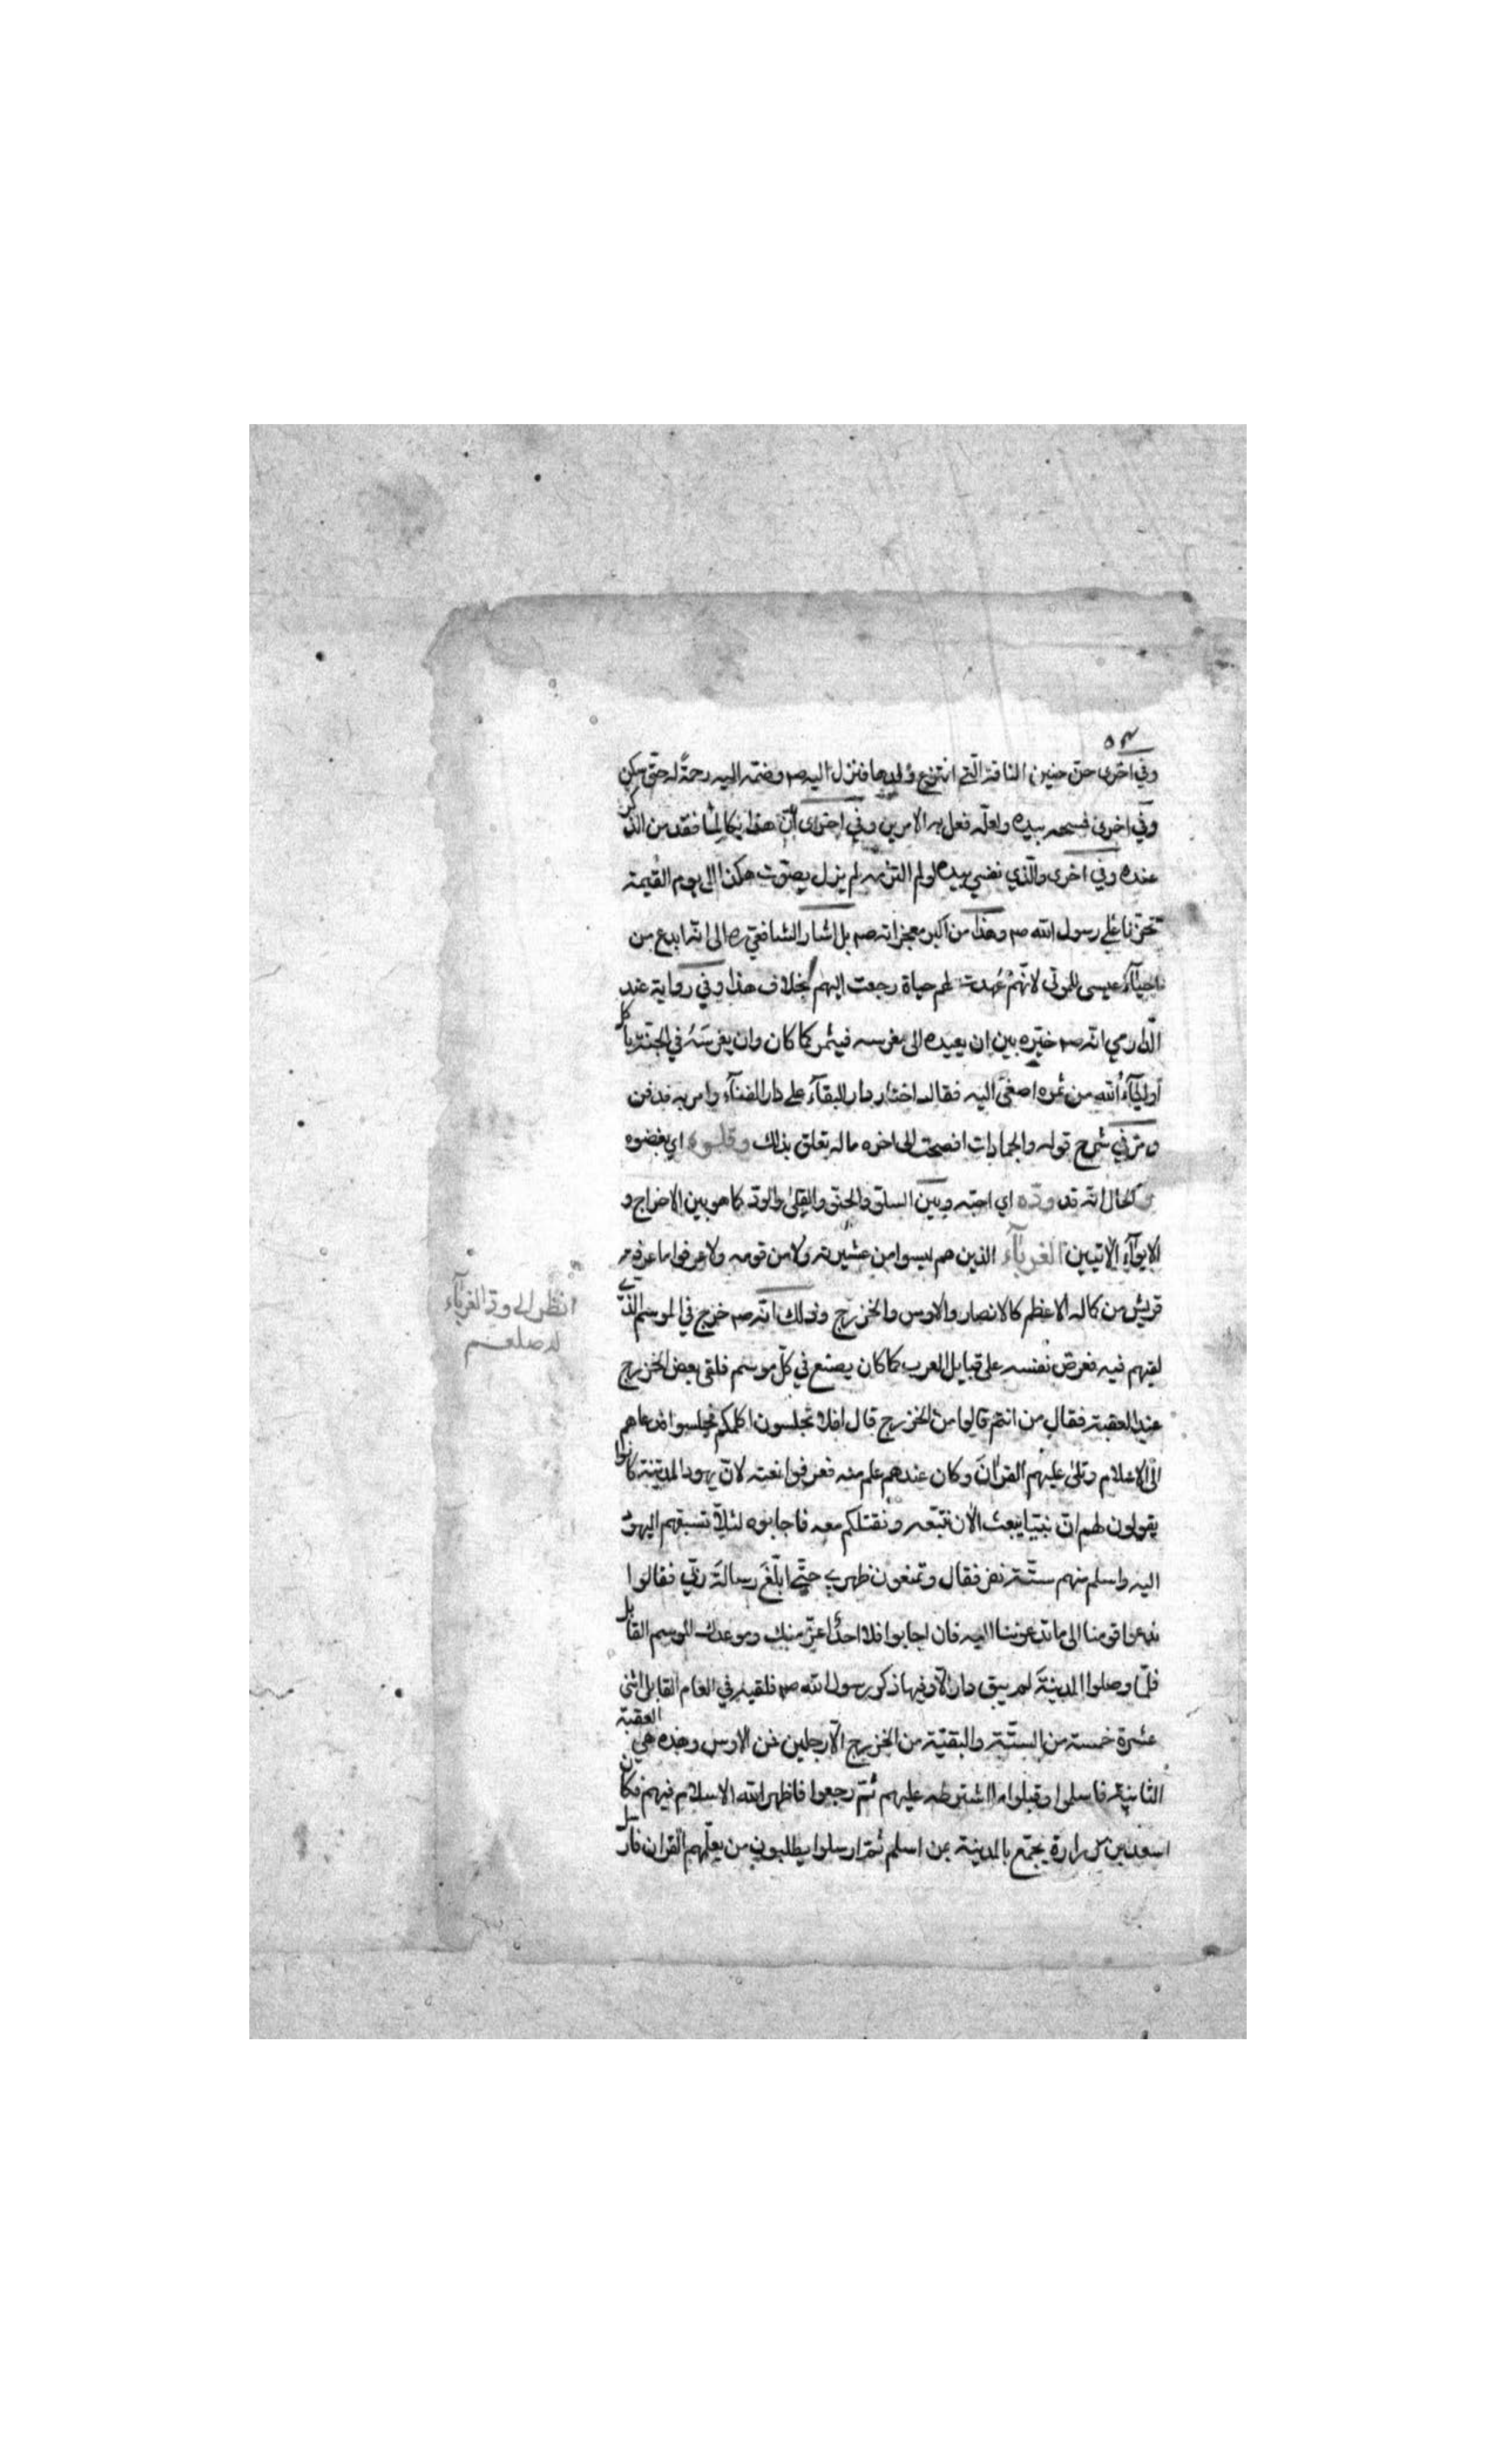 ٥٣
وفي اخرى حن حنين الناقة الّتي انتزع ولدها فنزل اليه صم وضمّه اليه رحمةً له حتّى سكن
وفي اخرى فمسحه بيده ولعلّه فعل به الامرين وفي اخرى انّ هذا بكا لما فقد من الذكر
عنده وفي اخرى والّذي نفسي بيده لو لم التزمه لم يزل يصوّت هكذا الى يوم القيمة
تحزّنا على رسول الله صم وهذا من اكبر معجزاته صم بل اشار الشافعي ره الى انّه ابدع من
احيآء عيسى الموتى لانّهم عُهدت لهم حياة رجعت اليهم بخلاف هذا وفي رواية عند
الدّارمي انّه صم خيّره بين ان يعيده الى مغرسه فيثمر كما كان وان يغرسَهُ في الجنّة يأكل
اوليآء الله من ثمره اصغى اليه فقال اختار دار البقآء على دار الفنآء وامر به فدفن
ومرّ في شرح قوله والجمادات افصحت الى اخره ما له تعلق بذلك وقلوه اي بغضوه
الحال انّه قد ودّه اي احبّه وبين السلق والحنق والقِلى والودّ كما هو بين الاخراج و
الايوآء الآتيين الغربآء الذين هم ليسوا من عشيرته ولا من قومه ولا عرفوا ما عرفه
قريش من كماله الاعظم كالانصار والاوس والخزرج وذلك انّه صم خرج في الموسم الذّي
لقيهم فيه فعرض نفسه على قبايل العرب كما كان يصنع في كلّ موسم فلقى بعض الخزرج
عند العقبة فقال من انتم قالوا من الخزرج قال افلا تجلسون اكلمكم فجلسوا فدعاهم
الى الاسلام وتلى عليهم القرانَ وكان عندهم علم منه فعرفوا نعته لانّ يهود المدينة كانوا
يقولون لهم انّ نبيّا يبعث الآن نتّبعه ونقتلكم معه فاجابوه لئلاّ تسبقهم اليهود
اليه واسلم منهم ستّة نفر فقال وتمنعون ظهري حتّى ابلّغَ رسالةَ ربّي فقالوا
ندعوا قومنا الى ما تدعوننا اليه فان اجابوا فلا احدًا اعزّ منك وموعدك الموسم القابل
فلمّا وصلوا المدينةَ لم يبق دار الاّ وفيها ذكر رسول الله صم فلقيه في العام القابل اثنى
عشرة خمسة من الستّة والبقيّة من الخزرج الاّ رجلين من الاوس وهذه هي العقبة
الثانية فاسلموا وقبلوا ما اشترطه عليهم ثمّ رجعوا فاظهر الله الاسلام فيهم فكان
اسعد بن زرارة يجتمع بالمدينة بمن اسلم ثمّ ارسلوا يطلبون من يعلّمهم القرآن فارسل
انظر الى ودّ الغربآء
له صلعم